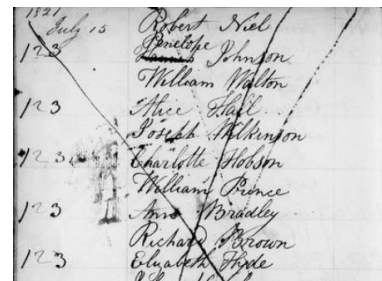 1821
July 15 Robert Niel
Penelope
123 James Johnson
William Walton
123 Alice Hall
Joseph Wilkinson
123 Charlotte Hobson
William Prince
123 Ann Bradley
Richard Brown
123 Elizabeth Hyde